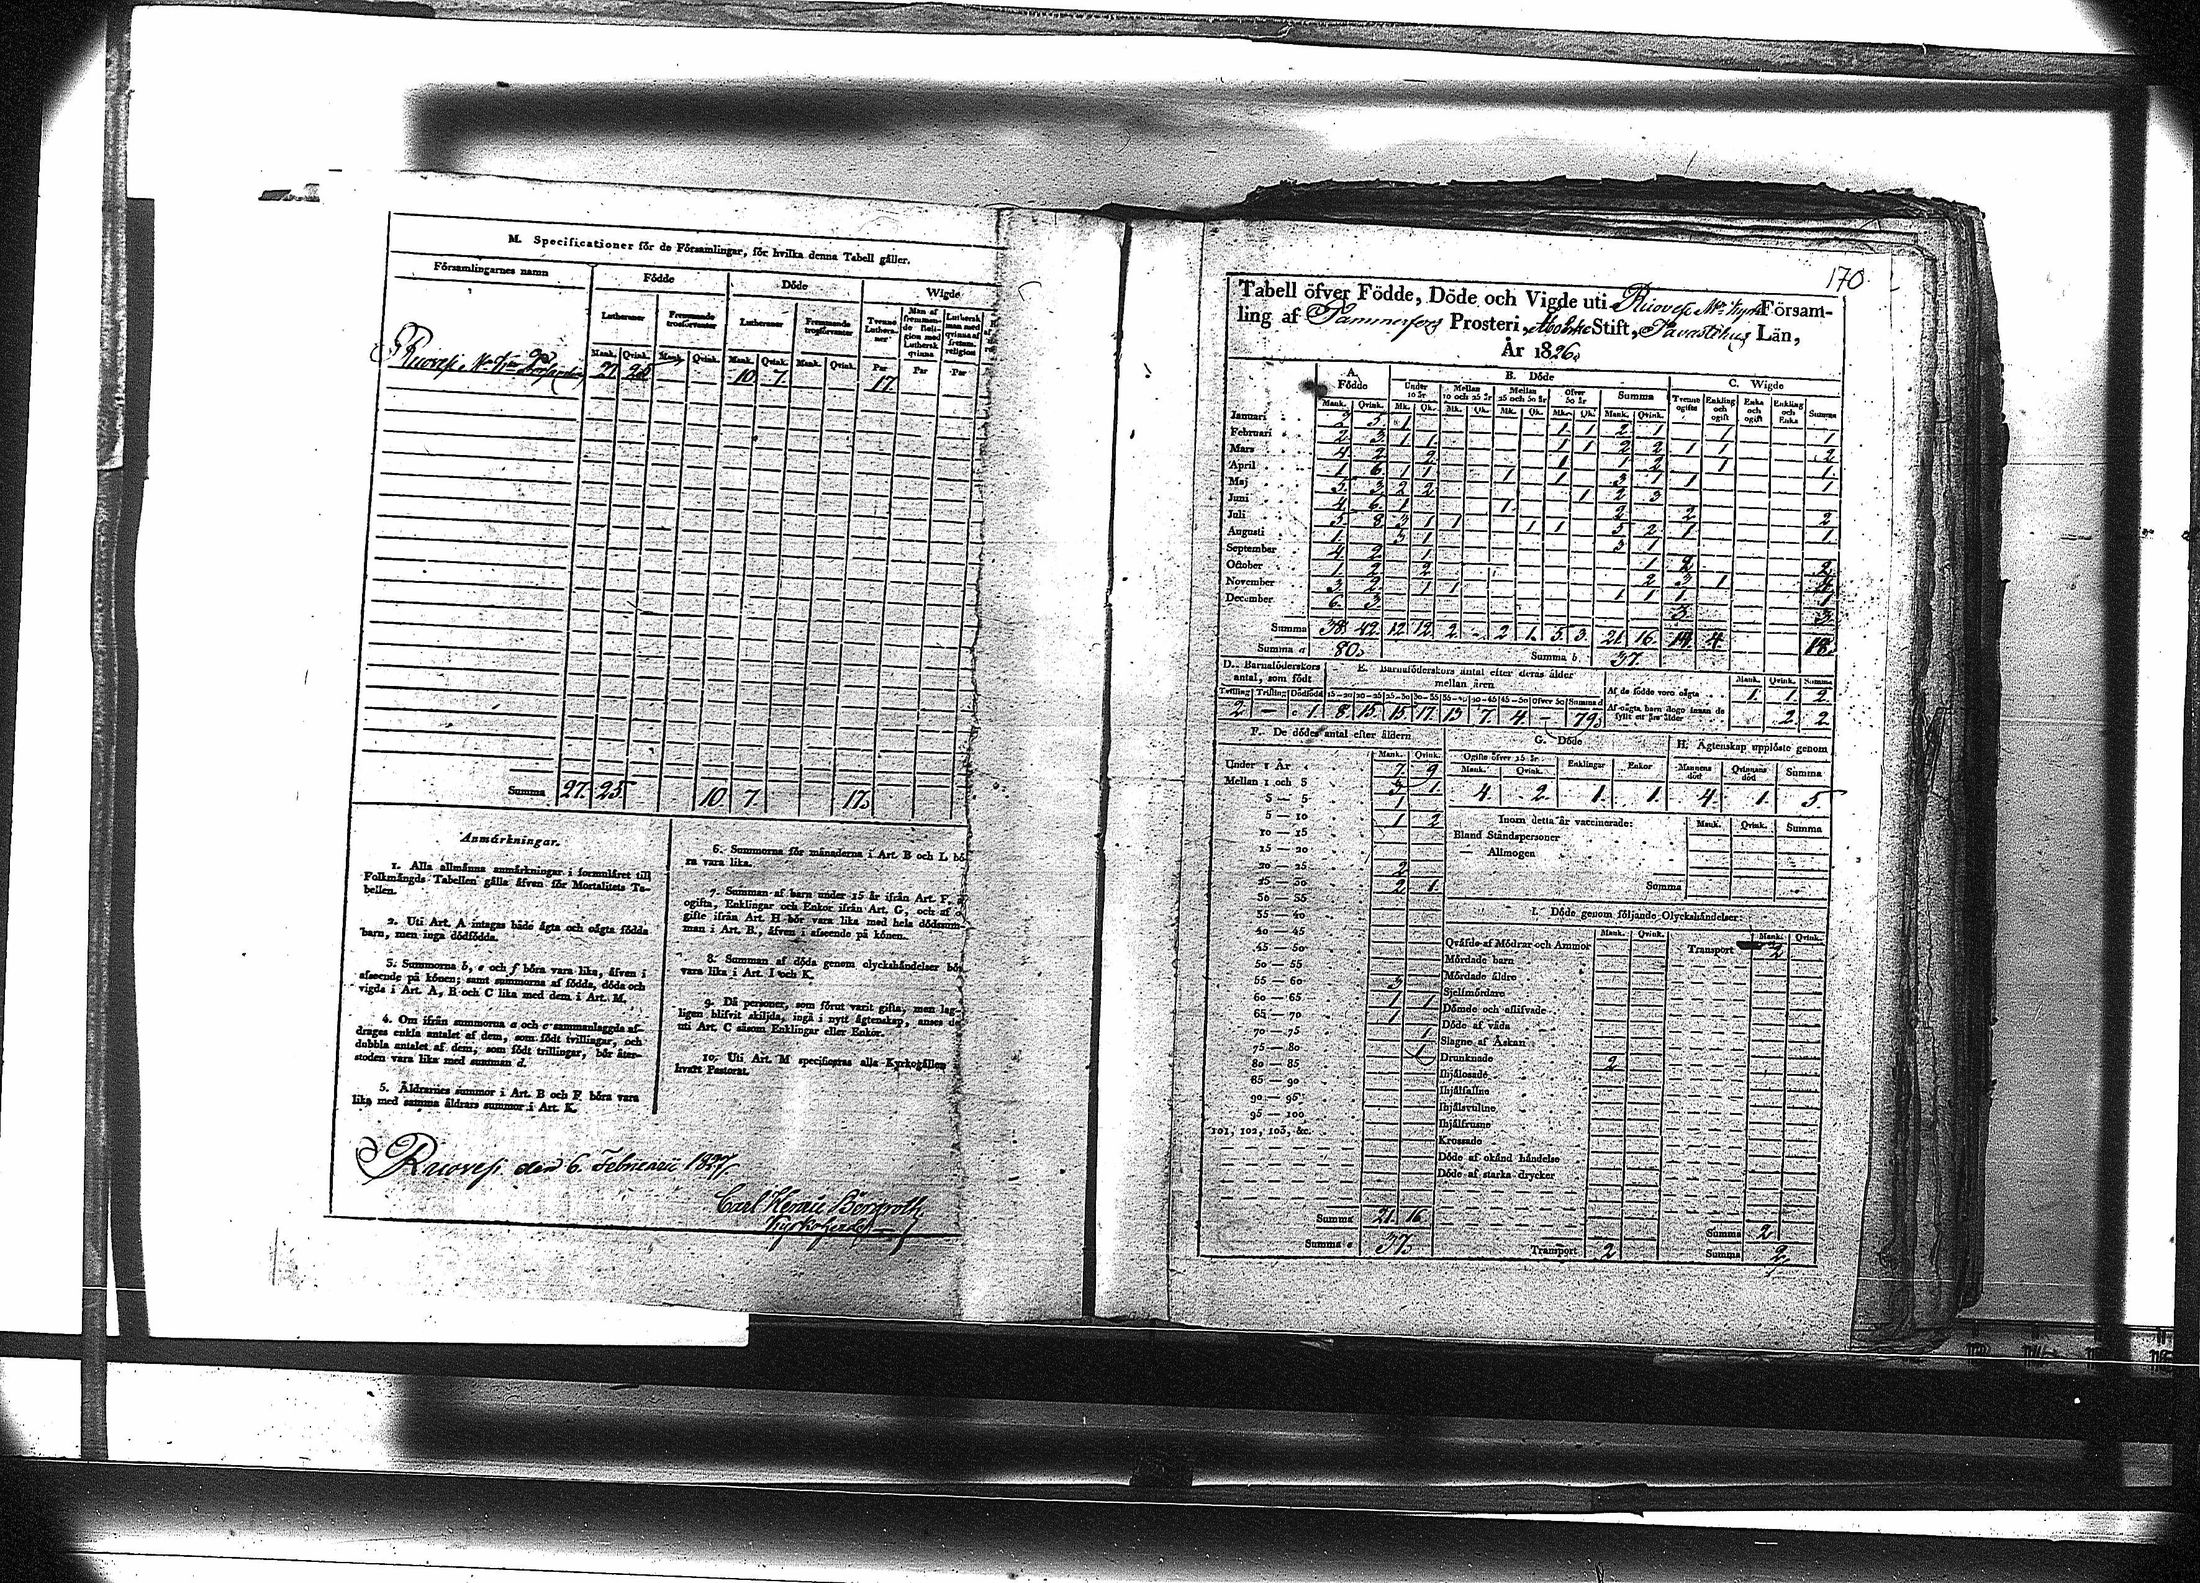 M. Specificationer för de Församlingar, för hvilka denna Tabell gäller.
Församlingarnes namn Födde Döde Wigde
Lutheraner Fremmande trosförvanter Lutheraner Fremmande trosförvanter
Mank. Qvink. Mank. Qvink. Mank. Qvink. Mank. Qvink. Par Par Par
Ruovesi 27. 25 10. 7. 17.
Summa 27. 25 10 7. 17.
Anmärkningar.
1. Alla allmänna anmärkningar i formuläret till
Folkmängds-Tabellen gälla äfven för Mortalitets Ta-
bellen.
2. Uti Art. A intagas både ägta och oägta födda
barn, men inga dödfödda.
3. Summorna b, e och f böra vara lika, äfven i
afseende på könen; samt summorna af födda, döda och
vigda i Art. A, B och C lika med dem i Art. M.
4. Om ifrån summorna a och c sammanlaggda af-
drages enkla antalet af dem, som födt tvillingar, och
dubbla antalet af dem, som födt trillingar, bör åter-
stoden vara lik med summan d.
5. Åldrarnes summor i Art. B och F böra vara
lika med samma åldrars summor i Art. K.
6. Summorna för månaderna i Art. B och L bö-
ra vara lika.
7. Summan af barn under 15 år ifrån Art. F,
ogifta, Enklingar och Enkor ifrån Art. G, och af
gifte ifrån Art. H bör vara lika med hela dödssum-
man i Art. B., äfven i afseende på könen.
8. Summan af döda genom olyckshändelser bör
vara lika i Art. I och K.
9. Då personer, som förut varit gifta, men lag-
ligen blifvit skiljda, ingå i nytt ägtenskap, anses de
uti Art. C såsom Enklingar eller Enkor.
10. Uti Art. M specificeras alla Kyrkogällen
hvart Pastorat.
Ruovesi den 6. Februarii 1827.
Carl
170.
Tabell öfver Födde, Döde och Vigde uti Ruovesi Försam-
ling af Tammerfors Prosteri, Åbo Stift, Tavastehus Län,
År 1826.
A. Födde B. Döde C. Wigde
Under 10 år Mellan 10 och 25 år Mellan 25 och 50 år Öfver 50 år Summa Tvenne ogifte Enkling och ogift Enka och ogift Enkling och Enka Summa
Mank. Qvink. Mk. Qk. Mk. Qk. Mk. Qk. Mk. Qk. Mank. Qvink.
Januari 2 5 1 1 1 2 1 1 1
Februari 2 3 1 1 1 1 2 2 1 1 2
Mars 4 2 2 1 1 2 1 1
April 1 6 1 1 1 1 3 1 1 1
Maj 5 3 2 2 1 2 3
Juni 4 6 1 1 2 2 2
Juli 5 8 3 1 1 1 1 5 2 1 1
Augusti 1 3 1 3 1
September 4 2 1 1 2 2
October 1 2 2 2 3 1 4
November 3 2 1 1 1 1 1 1
December 6 3 3 3
Summa 38 42 12 12 2 - 2 1. 5 3. 21 16. 14 4. 18.
Summa a 80. Summa b. 37.
D. Barnaföderskors antal, som födt
E. Barnaföderskors antal efter deras ålder mellan åren
Tvilling Trilling Dödfödd 15-20 20-25 25-30 30-35 35-40 40-45 45-50 Öfver 50 Summa d
2 — 1. 8 15 15 17 13 7. 4 - 79.
Mank. Qvink. Summa
Af de födde voro oägta 1. 1. 2
Af oägta barn dogo innan de fyllt ett års ålder 2 2
F. De dödes antal efter åldern
Mank. Qvink.
Under 1 År 7 9
Mellan 1 och 3 3 1
3 — 5 1
5 — 10 1 2
10 — 15
15 — 20
20 — 25 2
25 — 30 2 1
30 — 35
35 — 40
40 — 45
45 — 50
50 — 55
55 — 60 3
60 — 65 1 1
65 — 70 1
70 — 75 1
75 — 80 1
80 — 85
85 — 90
90 — 95
95 — 100
101, 102, 103, &c.
Summa 21. 16
Summa e 37.
G. Döde
Ogifte öfver 15 år Enklingar Enkor
Mank. Qvink.
4. 2. 1. 1.
H. Ägtenskap upplöste genom
Mannens död Qvinnans död Summa
4. 1. 5
Inom detta år vaccinerade: Mank. Qvink. Summa
Bland Ståndspersoner
— Allmogen
Summa
I. Döde genom följande Olyckshändelser:
Mank. Qvink. Mank. Qvink.
Qväfde af Mödrar och Ammor Transport 2
Mördade barn
Mördade äldre
Sjelfmördare
Dömde och aflifvade
Döde af våda
Slagne af Åskan
Drunknade 2
Ihjälosade
Ihjälfallne
Ihjälsvultne
Ihjälfrusne
Krossade
Döde af okänd händelse
Döde af starka drycker
Transport 2
Summa 2
Summa 2